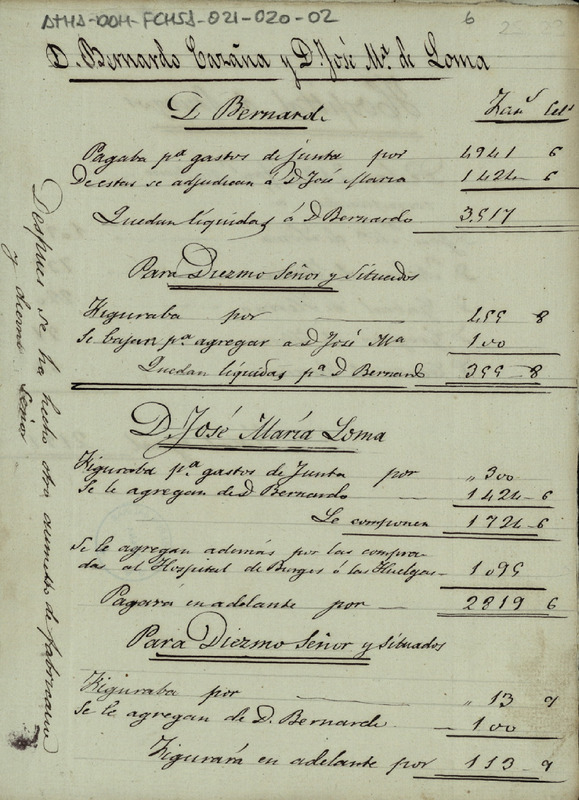 ATHA-DOH-FCHSA-021-020-02
6
D. Bernardo Cazaña y D. José Mª. de Loma
D Bernardo
Fans Cels
Pagaba pª gastos de Junta por 4941 6
De estas se adjudican á D José Maria 1424 - 6
Quedan líquidas á D. Bernardo 3517
Para Diezmo Señor y Situados
Figuraba por 455 8
Se bajan pª agregar a D. José Mª 100
Quedan líquidas pª D. Bernardo 355 - 8
D. José María Loma
Figuraba pª gastos de Junta por " 300
Se le agregan de D. Bernardo 1424 - 6
Le componen 1724 - 6
Se le agregan además por las compra-
das al Hospital de Burgos ó las Huelgas 1095
Pagará en adelante por 2819 6
Para Diezmo Señor y Situados
Figuraba por " 13 9
Se le agregan de D. Bernardo 100
Figurará en adelante por 113 - 9
Despues se ha hecho otro aumento de
y diezmo Señor